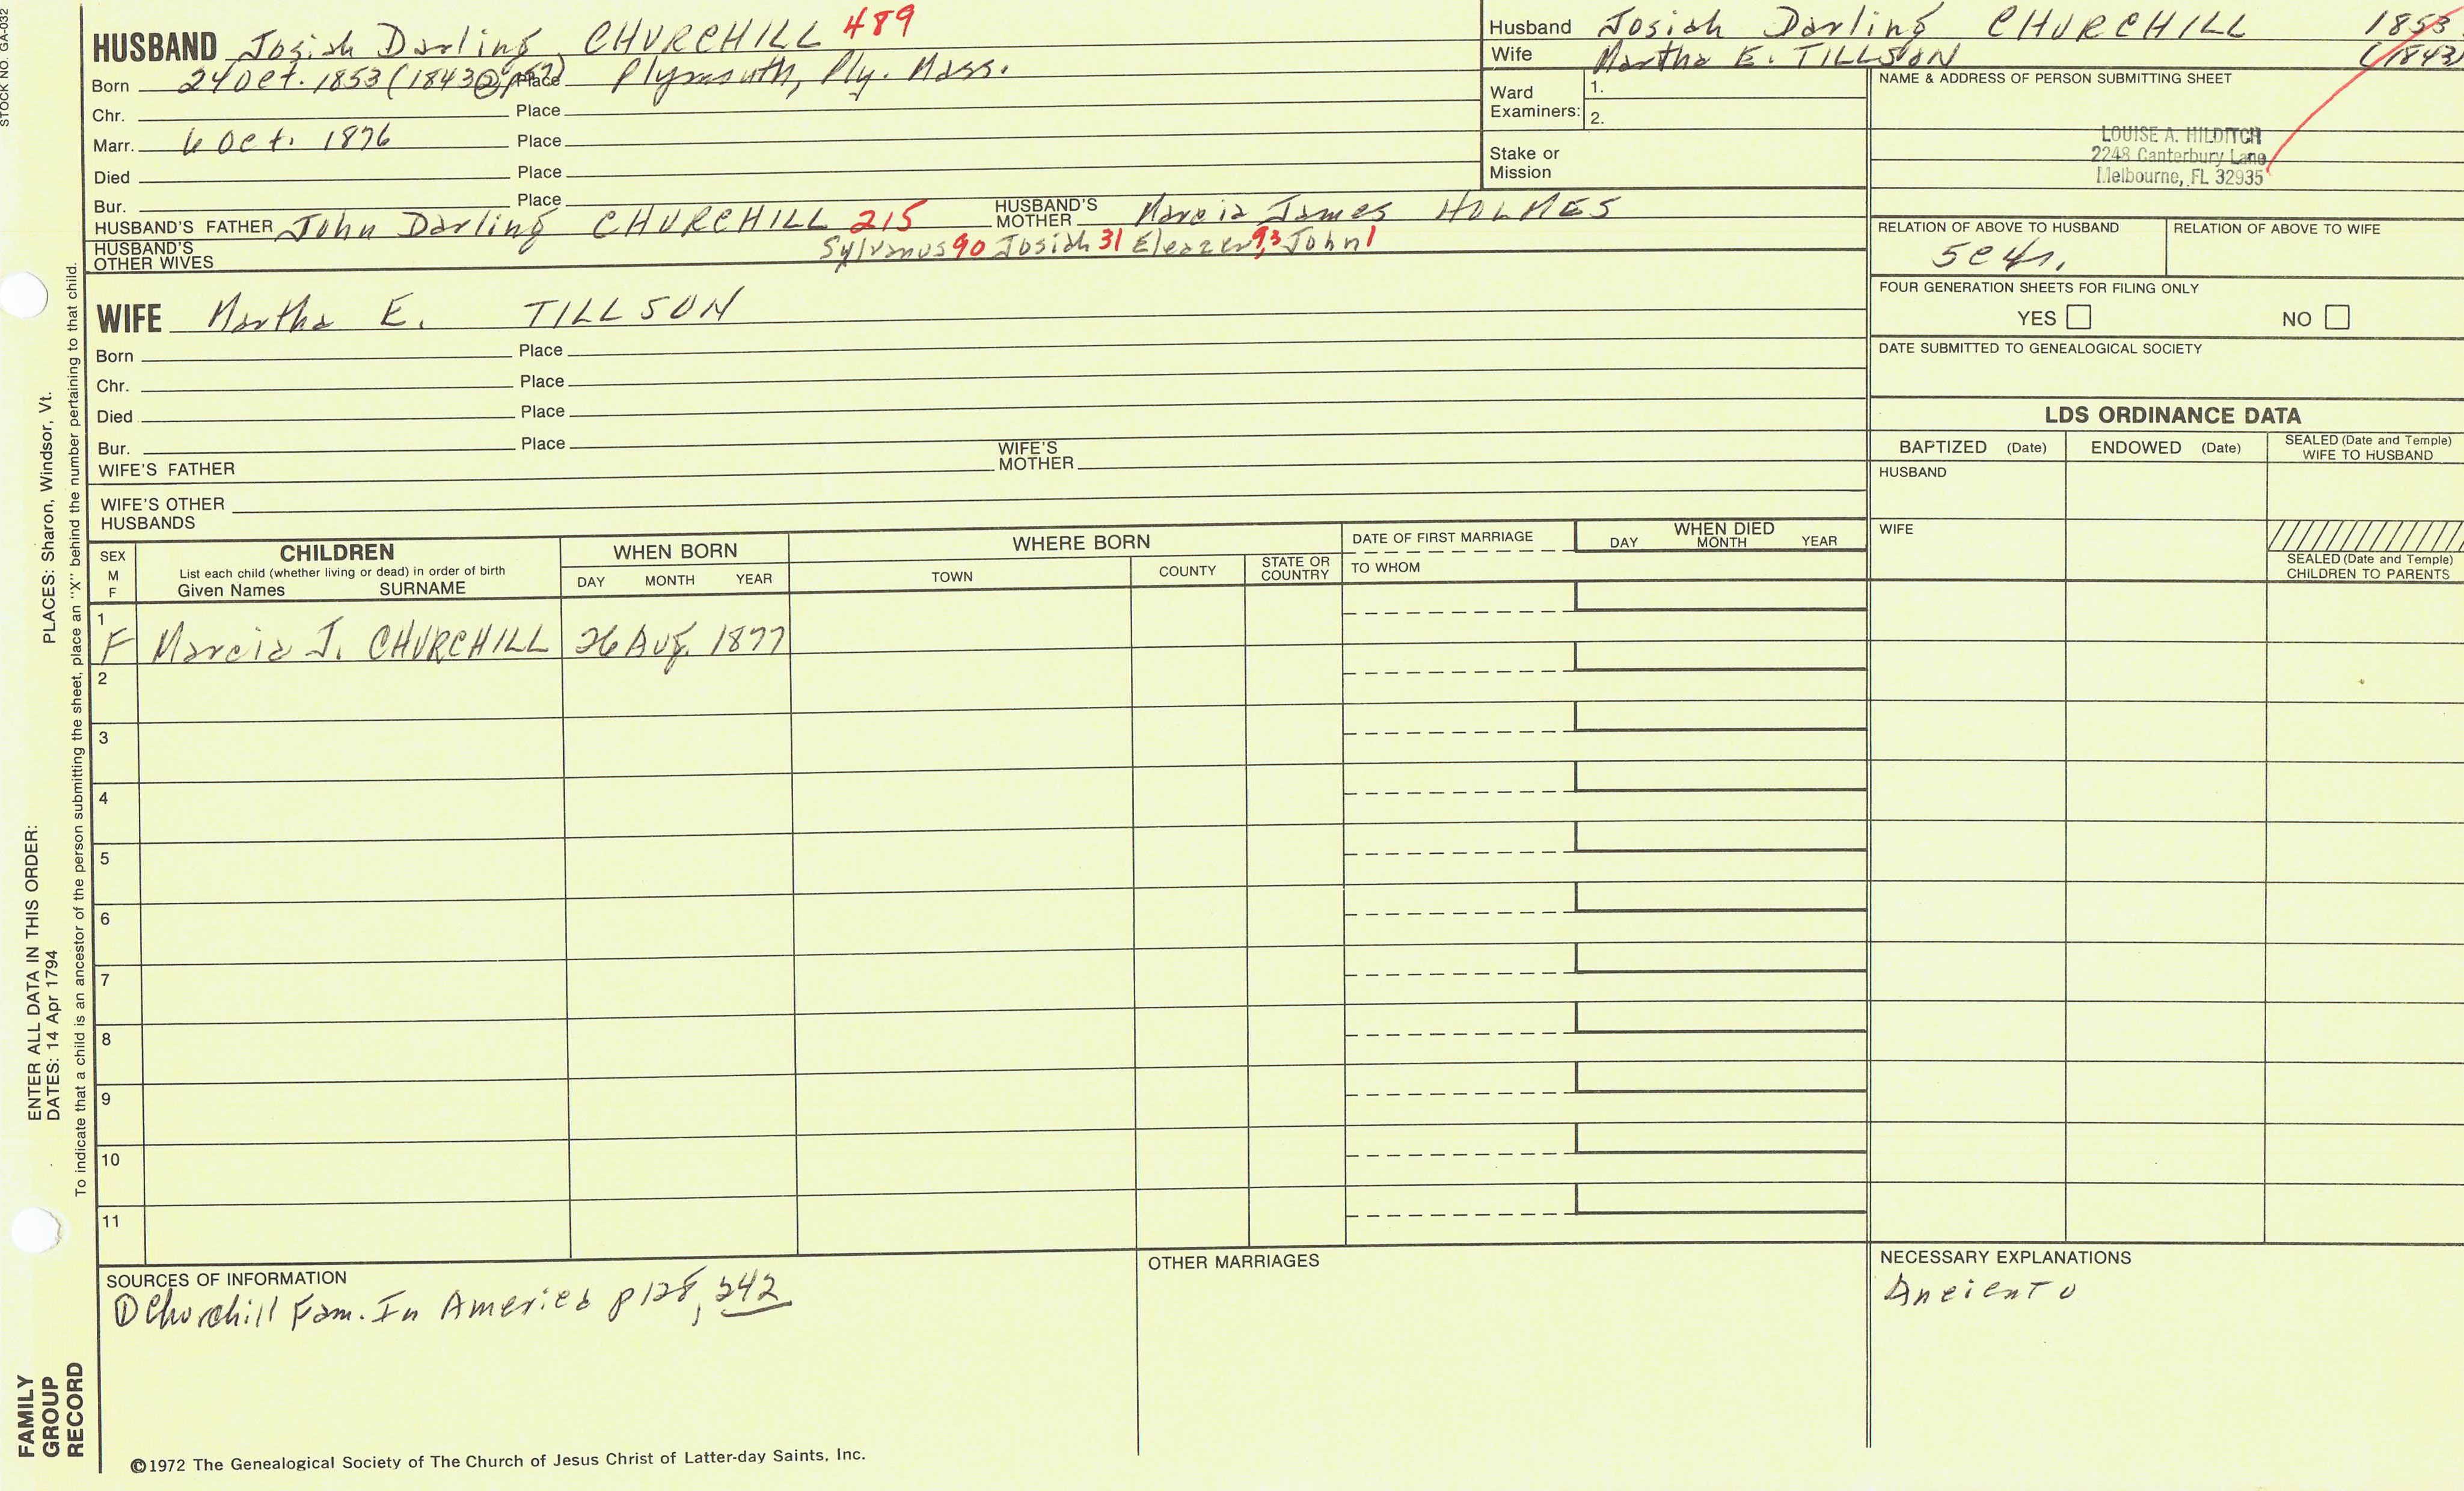 STOCK NO. GA-032
HUSBAND Josiah Darling CHURCHILL 489
Born 24 Oct. 1853 (1843 Place Plymouth, Ply. Mass.
Chr. Place
Marr. 6 Oct. 1876 Place
Died Place
Bur. Place
HUSBAND'S FATHER John Darling CHURCHILL 215 HUSBAND'S MOTHER Marcia James HOLMES
HUSBAND'S OTHER WIVES Sylvanus 90 Josiah 31 Eleazer 9,3 John 1
WIFE Martha E. TILLSON
Born Place
Chr. Place
Died Place
Bur. Place
WIFE'S FATHER WIFE'S MOTHER
WIFE'S OTHER HUSBANDS
Husband Josiah Darling CHURCHILL 1853
Wife Martha E. TILLSON (1843)
Ward Examiners: 1.
2.
Stake or Mission
NAME & ADDRESS OF PERSON SUBMITTING SHEET
LOUISE A. HILDITCH
2248 Canterbury Lane
Melbourne, FL 32935
RELATION OF ABOVE TO HUSBAND RELATION OF ABOVE TO WIFE
FOUR GENERATION SHEETS FOR FILING ONLY
YES NO
DATE SUBMITTED TO GENEALOGICAL SOCIETY
LDS ORDINANCE DATA
BAPTIZED (Date) ENDOWED (Date) SEALED (Date and Temple) WIFE TO HUSBAND
HUSBAND
WIFE
SEALED (Date and Temple) CHILDREN TO PARENTS
SEX M F
CHILDREN
List each child (whether living or dead) in order of birth
Given Names SURNAME
WHEN BORN
DAY MONTH YEAR
WHERE BORN
TOWN COUNTY STATE OR COUNTRY
DATE OF FIRST MARRIAGE
TO WHOM
WHEN DIED
DAY MONTH YEAR
1 F Marcia J. CHURCHILL 26 Aug. 1877
2
3
4
5
6
7
8
9
10
11
SOURCES OF INFORMATION
① Churchill Fam. In America p 128, 242
OTHER MARRIAGES
NECESSARY EXPLANATIONS
©1972 The Genealogical Society of The Church of Jesus Christ of Latter-day Saints, Inc.
FAMILY
GROUP
RECORD
ENTER ALL DATA IN THIS ORDER:
DATES: 14 Apr 1794 PLACES: Sharon, Windsor, Vt.
To indicate that a child is an ancestor of the person submitting the sheet, place an "X" behind the number pertaining to that child.